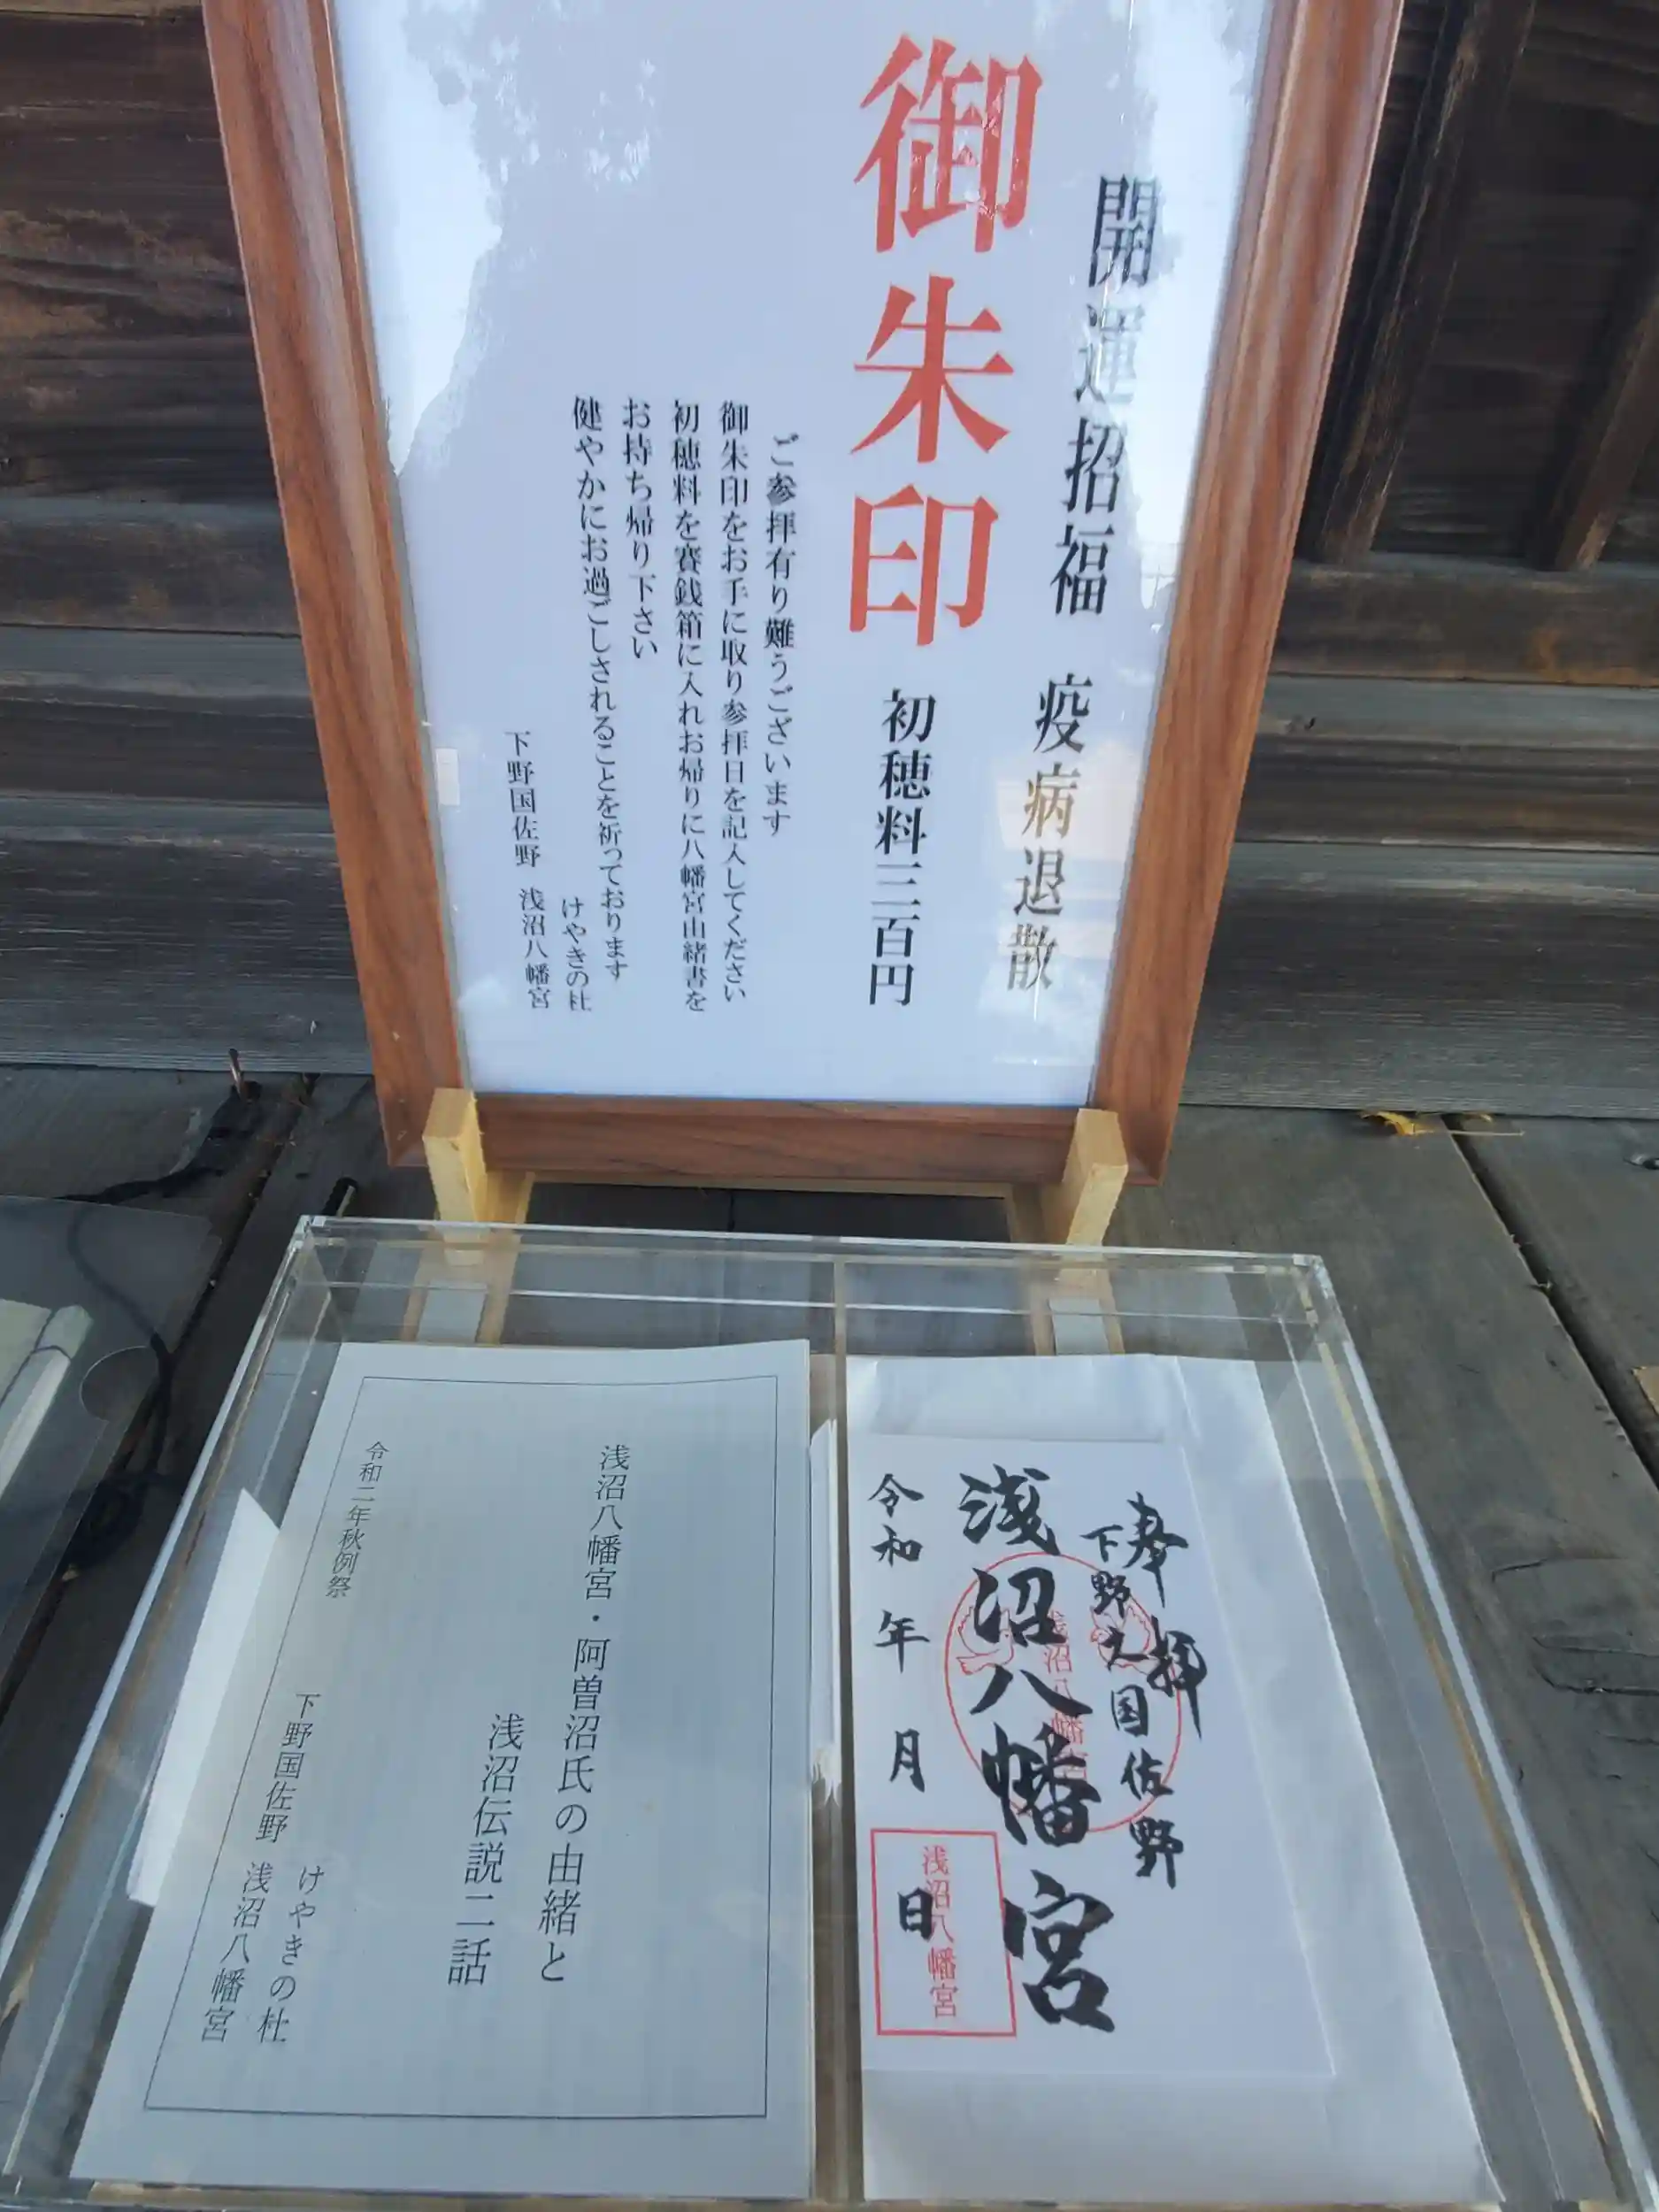 開運招福 疫病退散
御朱印 初穂料三百円
ご参拝有り難うございます
御朱印をお手に取り参拝日を記入してください
初穂料を賽銭箱に入れお帰りに八幡宮由緒書を
お持ち帰り下さい
健やかにお過ごしされることを祈っております
けやきの杜
下野国佐野 浅沼八幡宮
奉拝
下野之国佐野
浅沼八幡宮
浅沼八幡宮
令和 年 月 日
浅沼八幡宮
浅沼八幡宮・阿曽沼氏の由緒と
浅沼伝説二話
令和二年秋例祭
けやきの杜
下野国佐野 浅沼八幡宮